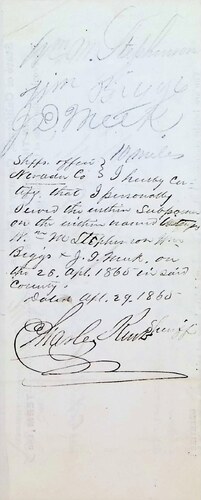 Wm M. Stephenson
Wm Biggs
J. D. Meek
10 miles
Shffs. office }
Nevada Co } I hereby Cer-
tify that I personally
served the within Subpoena
on the within named
Wm M Stephenson Wm
Biggs & J. D. Meek. on
the 28. Apl. 1865 in said
County.
Dated Apl. 29. 1865
Charles Kent Sheriff